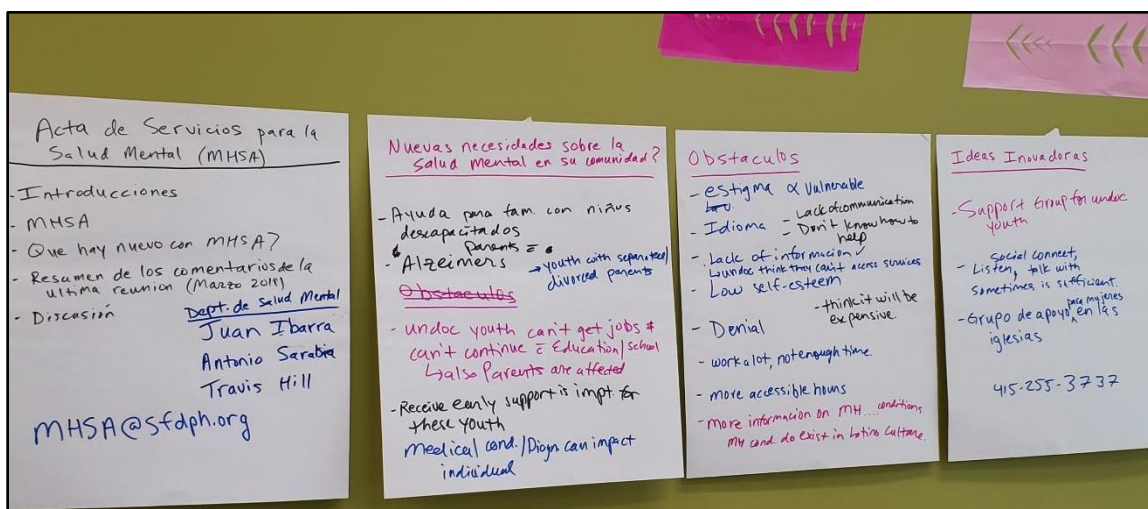 Acta de Servicios para la
Salud Mental (MHSA)
- Introducciones
- MHSA
- Que hay nuevo con MHSA?
- Resumen de los comentarios de la
ultima reunion (Marzo 2018)
- Discusión
Dept. de Salud Mental
Juan Ibarra
Antonio Sarabia
Travis Hill
MHSA@sfdph.org
Nuevas necesidades sobre la
Salud mental en su comunidad?
- Ayuda para fam. con niños
descapacitados
parents =
- Alzeimers
→ youth with separated/
divorced parents
Obstaculos
- undoc youth can't get jobs &
can't continue = Education/school
↳ also Parents are affected
- Receive early support is impt for
these youth
Medical cond./Diagn can impact
individual
Obstaculos
- estigma α vulnerable
- Idioma
- Lack of communication
- Don't know how to
help
- Lack of informacion ✓
↳ undoc think they can't access services
- Low self-esteem
- think it will be
expensive.
- Denial
- work a lot, not enough time.
- more accessible hours
- more informacion on MH.... conditions
MH cond. do exist in Latino Culture.
Ideas Inovadoras
- Support Group for undoc
youth
social connect,
- Listen, talk with
sometimes is sufficient.
- Grupo de apoyo para mujeres en las
iglesias
415-255-3737